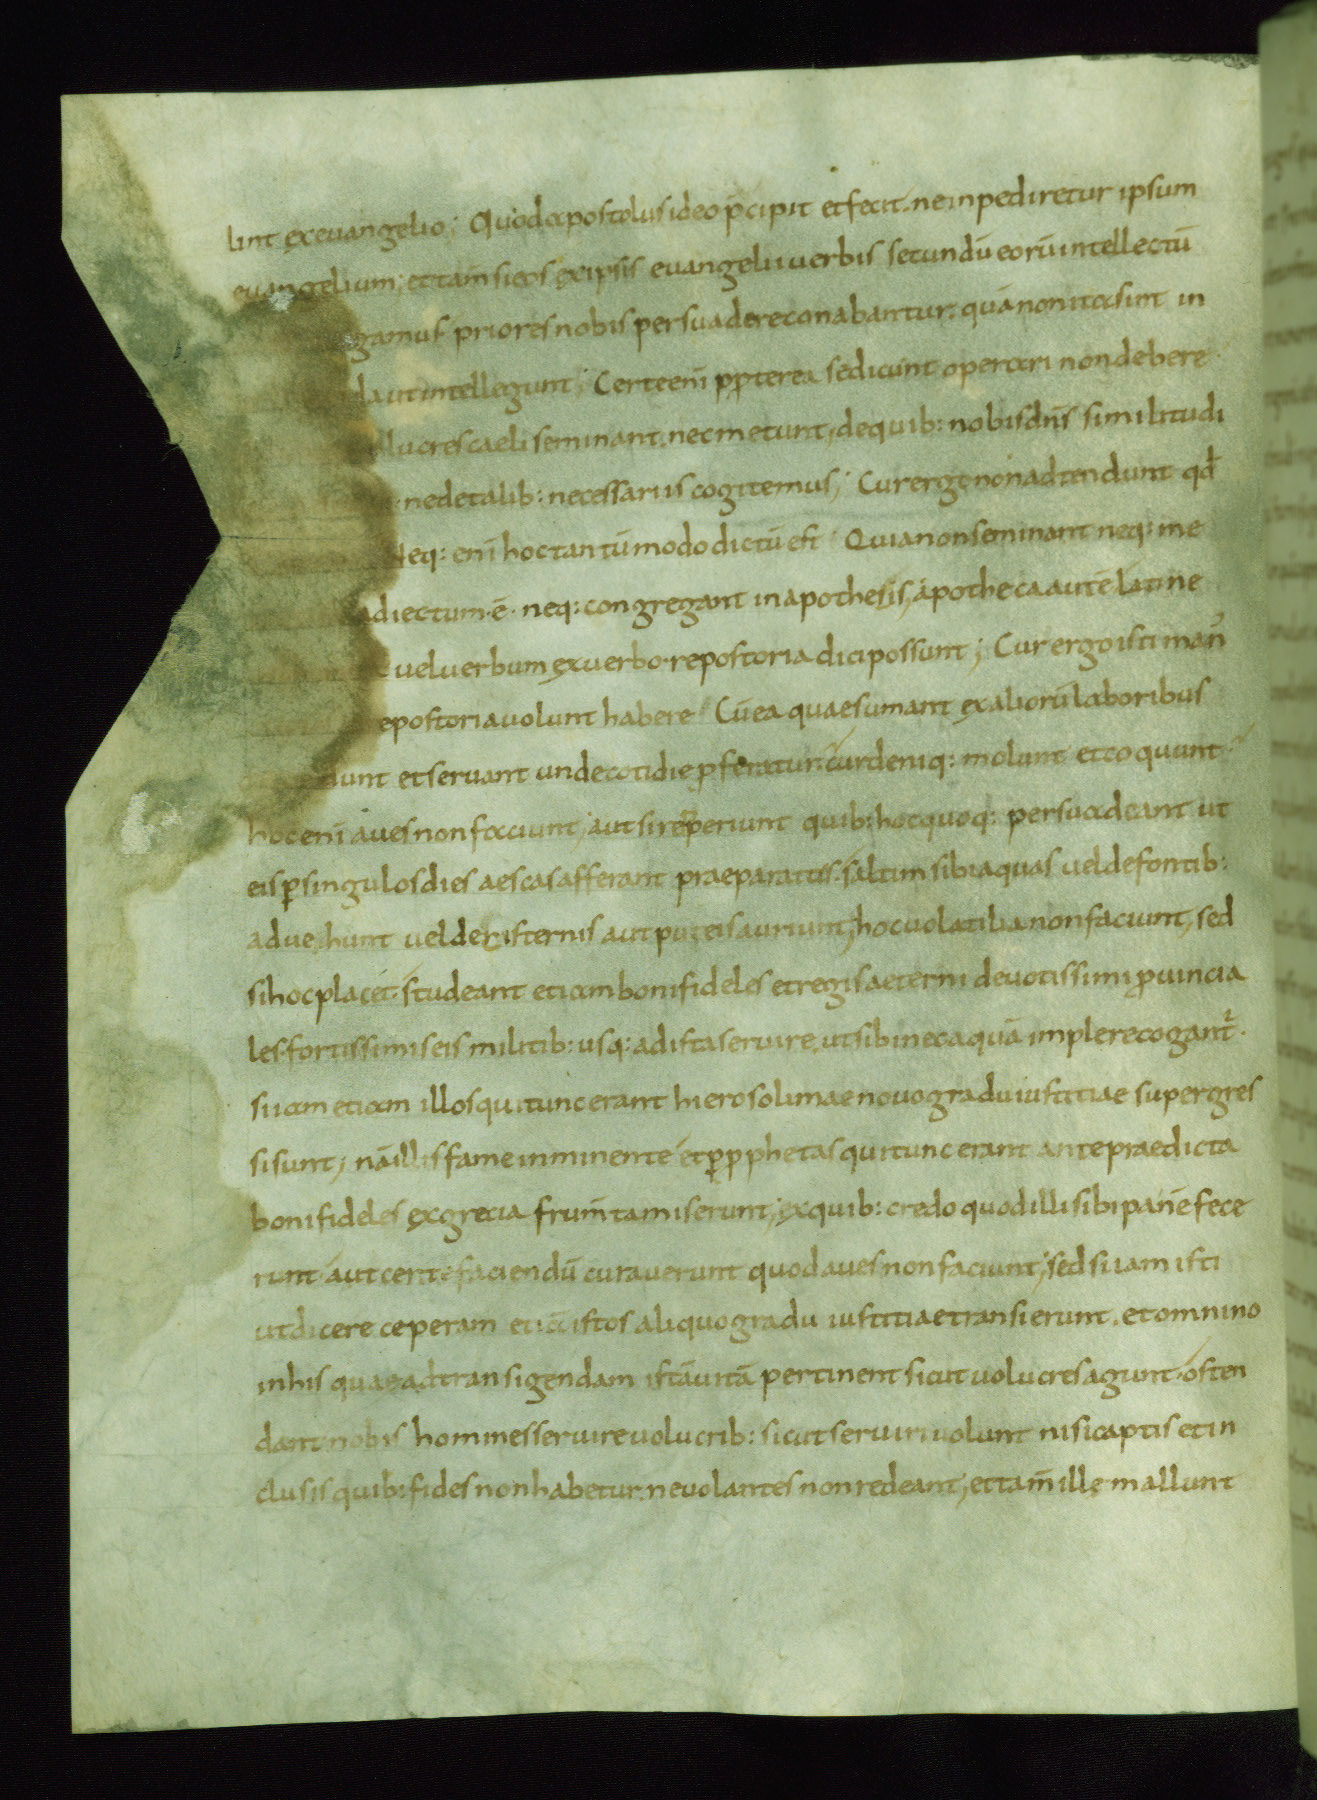 lint exevangelio; Quodapostolus ideo p̄cipit etfecit. neinpediretur ipsum
evangelium; et tam̄ sieos exipsis evangelii verbis secundū eorū intellectū
gamus priores nobis persuadere conabantur. quā non ita sint in
la ut intellegunt; Certe enī ꝓpterea se dicunt operari non debere
lucres caeli seminant. nec metunt, de quib: nobis dn̄s similitudi
. ne de talib: necessariis cogitemus; Cur ergo non adtendunt qđ
Neq: enī hoc tantū modo dictū est Quia non seminant neq: me
adiectum ē. neq: congregant in apothesis, apotheca autē latine
vel verbum ex verbo repostoria dici possunt; Cur ergo isti man̄
epostoria volunt habere Cū ea quae sumant ex aliorū laboribus
dunt et servant unde cotidie ꝓferatur. cur deniq: molunt et coquunt
hoc enī aves non faciunt; aut si repperiunt quib: hoc quoq: persuadeant ut
eis ꝑ singulos dies aescas afferant praeparatas. saltim sibi aquas vel de fontib:
advehunt vel de cisternis aut puteis auriunt, hoc volatilia non faciunt, sed
si hoc placet. studeant etiam boni fideles et regis aeterni devotissimi ꝓvincia
les. fortissimis eis militib: usq: ad ista servire. ut sibi nec aquā implere cogant̄.
si iam etiam illos qui tunc erant hierosolimae novo gradu iustitiae supergres
si sunt; nā illis fame imminente et ꝑ ꝓphetas qui tunc erant ante praedicta
boni fideles ex grecia frum̄ta miserunt, ex quib: credo quod illi sibi panē fece
runt aut certe faciendū curaverunt quod aves non faciunt, sed si iam isti
ut dicere ceperam etiā istos aliquo gradu iustitiae transierunt. et omnino
in his quae ad transigendam istā vitā pertinent sicut volucres agunt. osten
dant nobis homines servire volucrib: sicut serviri volunt nisi captis et in
clusis quib: fides non habetur. ne volantes non redeant, et tam̄ ille mallunt